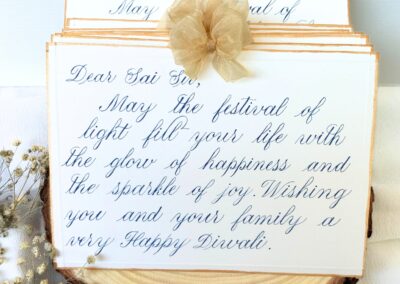 May
festival of
Dear Sai Sir,
May the festival of
light fill your life with
the glow of happiness and
the sparkle of joy. Wishing
you and your family a
very Happy Diwali.